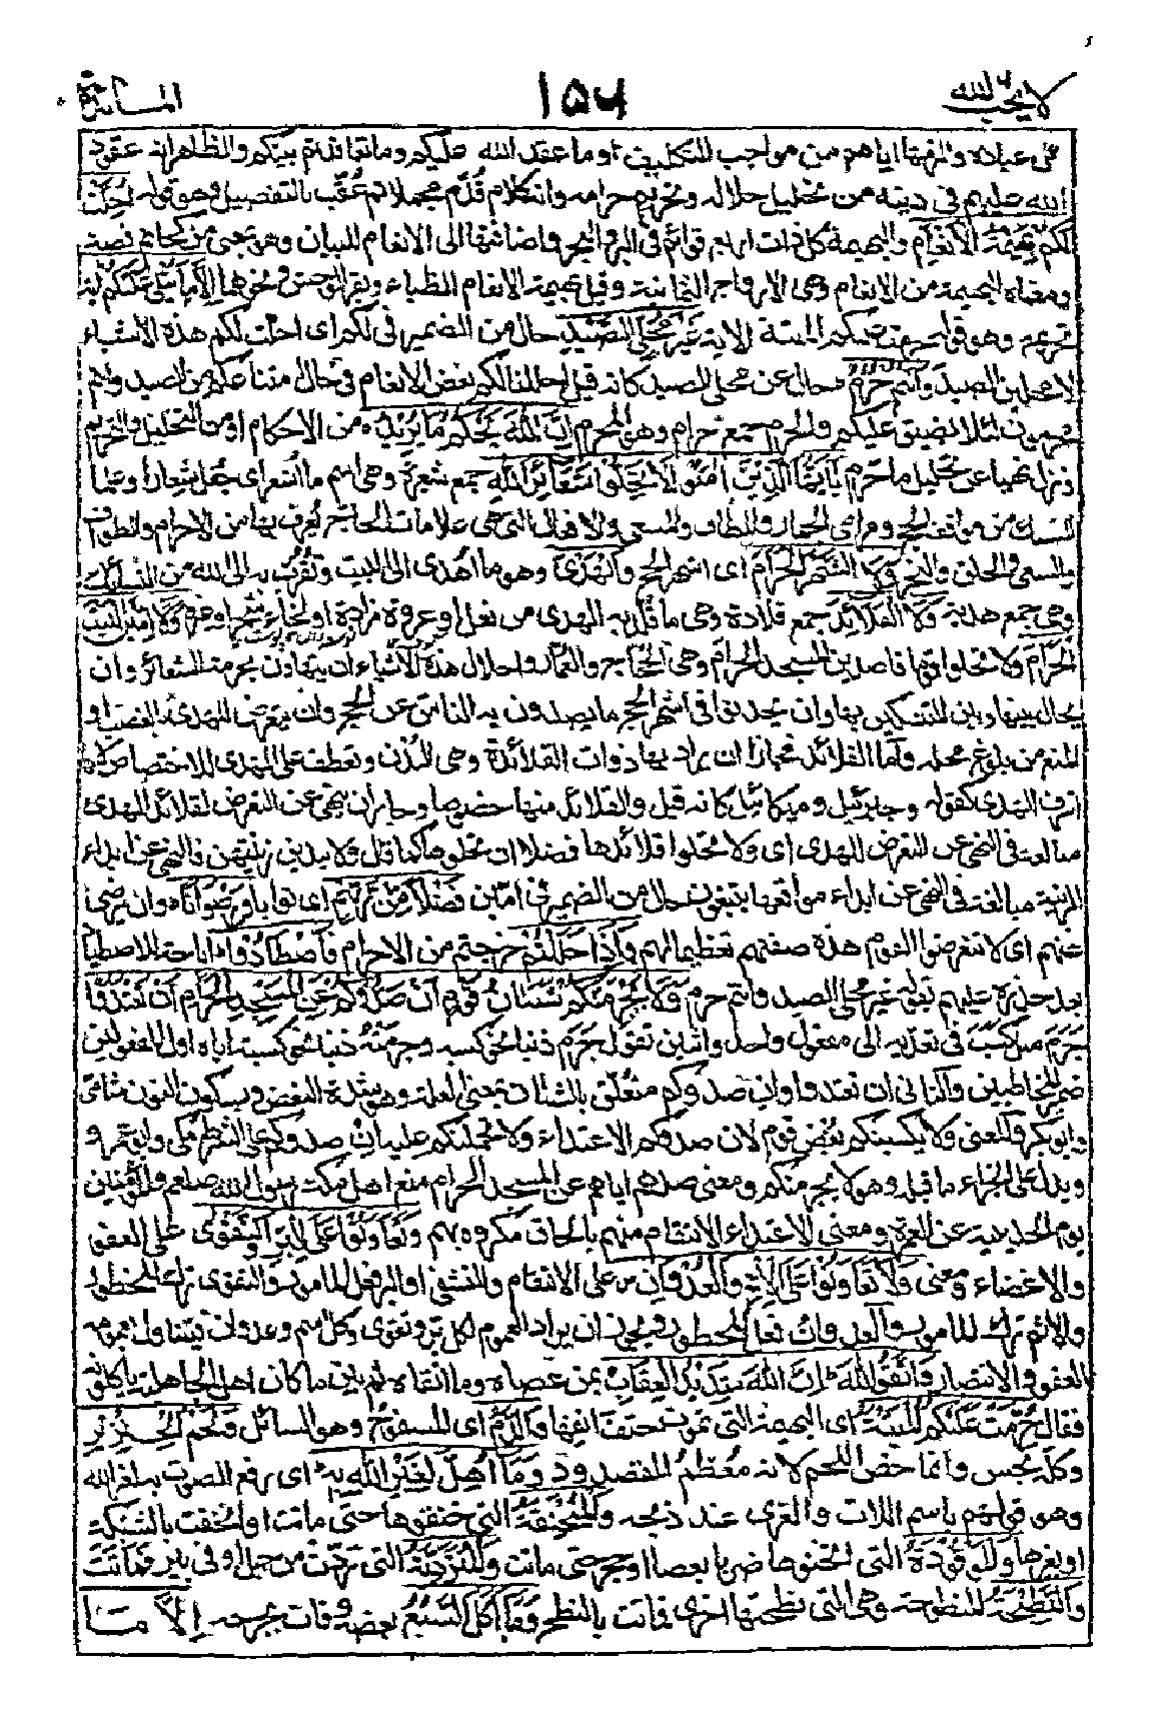 لا يحب الله ١٥٦ المائدة
على عباده والزمها اياهم من مواجب التكليف او ما عقد الله عليكم وما تعاقدتم بينكم والظاهر انه عقود
الله عليهم في دينه من تحليل حلاله وتحريم حرامه وانه كلام قُدّم مجملا ثم عُقّب بالتفصيل وهو قوله اُحِلَّتْ
لَكُمْ بَهِيمَةُ الْأَنْعَامِ والبهيمة كل ذات اربع قوائم في البر والبحر واضافتها الى الانعام للبيان وهى بمعنى من كخاتم فضة
ومعناه البهيمة من الانعام وهى الازواج الثمانية وقيل بهيمة الانعام الظباء وبقر الوحش ونحوهما إِلَّا مَا يُتْلَى عَلَيْكُمْ اية
تحريمه وهو قوله حرمت عليكم الميتة الاية غَيْرَ مُحِلِّي الصَّيْدِ حال من الضمير في لكم اى احلت لكم هذه الاشياء
لا محلين الصيد وَأَنْتُمْ حُرُمٌ حال عن محلى الصيد كانه قيل احللنا لكم بعض الانعام في حال امتناعكم من الصيد وانتم
محرمون لئلا نضيق عليكم والحرم جمع حرام وهو المحرم إِنَّ اللَّهَ يَحْكُمُ مَا يُرِيدُ ه من الاحكام او من التحليل والتحريم
ونزل نهيا عن تحليل ما حرم يَا أَيُّهَا الَّذِينَ آمَنُوا لَا تُحِلُّوا شَعَائِرَ اللَّهِ جمع شعيرة وهى اسم ما اشعر اى جُعل شِعارا وعلما
للنسك من مواقف الحج ومرامى الجمار والمطاف والمسعى والافعال التى هى علامات الحاج يُعرف بها من الاحرام والطواف
والسعى والحلق والنحر وَلَا الشَّهْرَ الْحَرَامَ اى اشهر الحج وَلَا الْهَدْيَ وهو ما اُهدى الى البيت وتُقُرِّب به الى الله من النسائك
وهى جمع هدية وَلَا الْقَلَائِدَ جمع قلادة وهى ما قُلّد به الهدى من نعل او عروة مزادة او لحاء شجر او غيره وَلَا آمِّينَ الْبَيْتَ
الْحَرَامَ ولا تحلوا قوما قاصدين المسجد الحرام وهم الحجاج والعمار واحلال هذه الاشياء ان يتهاون بحرمة الشعائر وان
يحال بينها وبين المتنسكين بها وان يحدثوا في اشهر الحج ما يصدون به الناس عن الحج وان يتعرض للهدى بالغصب او
بالمنع من بلوغ محله واما القلائد فجاز ان يراد بها ذوات القلائد وهى البُدن وتعطف على الهدى للاختصاص لانه
اشرف الهدى كقوله وجبرئيل وميكائيل كانه قيل والقلائد منها خصوصا وجاز ان ينهى عن التعرض لقلائد الهدى
مبالغة في النهى عن التعرض للهدى اى ولا تحلوا قلائدها فضلا ان تحلوها كما قال ولا يبدين زينتهن فنهى عن ابداء
الزينة مبالغة في النهى عن ابداء مواقعها يبتغون حال من الضمير في امّين فَضْلًا مِنْ رَبِّهِمْ اى ثوابا وَرِضْوَانًا ه وان يرضى
عنهم اى لا تتعرضوا لقوم هذه صفتهم تعظيما لهم وَإِذَا حَلَلْتُمْ خرجتم من الاحرام فَاصْطَادُوا اباحة للاصطياد
بعد حظره عليهم بقوله غير محلى الصيد وانتم حرم وَلَا يَجْرِمَنَّكُمْ شَنَآنُ قَوْمٍ أَنْ صَدُّوكُمْ عَنِ الْمَسْجِدِ الْحَرَامِ أَنْ تَعْتَدُوا
جَرَمَ مثل كَسَبَ في تعديه الى مفعول واحد واثنين تقول جَرَم ذنبا نحو كسبه وجرمتُه ذنبا نحو كسبته اياه واول المفعولين
ضمير المخاطبين والثانى ان تعتدوا وان صدوكم متعلّق بالشنان بمعنى العلة وهو شدة البغض وبسكون النون شامى
وابو بكر والمعنى ولا يكسبنكم بغض قوم لان صدوكم الاعتداء ولا يحملنكم عليه ان صدوكم على الشرط مكى وابو عمرو و
ويدل على الجزاء ما قبله وهو لا يجرمنكم ومعنى صدهم اياهم عن المسجد الحرام منع اهل مكة رسول الله صلعم والمؤمنين
يوم الحديبية عن العمرة ومعنى الاعتداء الانتقام منهم بالحاق مكروه بهم وَتَعَاوَنُوا عَلَى الْبِرِّ وَالتَّقْوَى على العفو
والاغضاء ومعنى وَلَا تَعَاوَنُوا عَلَى الْإِثْمِ وَالْعُدْوَانِ ص على الانتقام والتشفى او البر فعل المامور والتقوى ترك المحظور
والاثم ترك المامور والعدوان فعل المحظور ويجوز ان يراد العموم لكل بر وتقوى وكل اثم وعدوان فيتناول بعمومه
العفو والانتصار وَاتَّقُوا اللَّهَ إِنَّ اللَّهَ شَدِيدُ الْعِقَابِ لمن عصاه وما اتقاه ثم بين ما كان اهل الجاهلية ياكلونه
فقال حُرِّمَتْ عَلَيْكُمُ الْمَيْتَةُ اى البهيمة التى تموت حتف انفها وَالدَّمُ اى المسفوح وهو السائل وَلَحْمُ الْخِنْزِيرِ
وكله نجس وانما خص اللحم لانه مُعظم المقصود وَمَا أُهِلَّ لِغَيْرِ اللَّهِ بِهِ اى رفع الصوت به لغير الله
وهو قولهم باسم اللات والعزى عند ذبحه وَالْمُنْخَنِقَةُ التى خنقوها حتى ماتت او انخنقت بالشبكة
او بغيرها وَالْمَوْقُوذَةُ التى اثخنوها ضربا بعصا او حجر حتى ماتت وَالْمُتَرَدِّيَةُ التى تردّت من جبل او في بير فماتت
وَالنَّطِيحَةُ المنطوحة وهى التى نطحتها اخرى فماتت بالنطح وَمَا أَكَلَ السَّبُعُ بعضه وفات بجرحه إِلَّا مَا